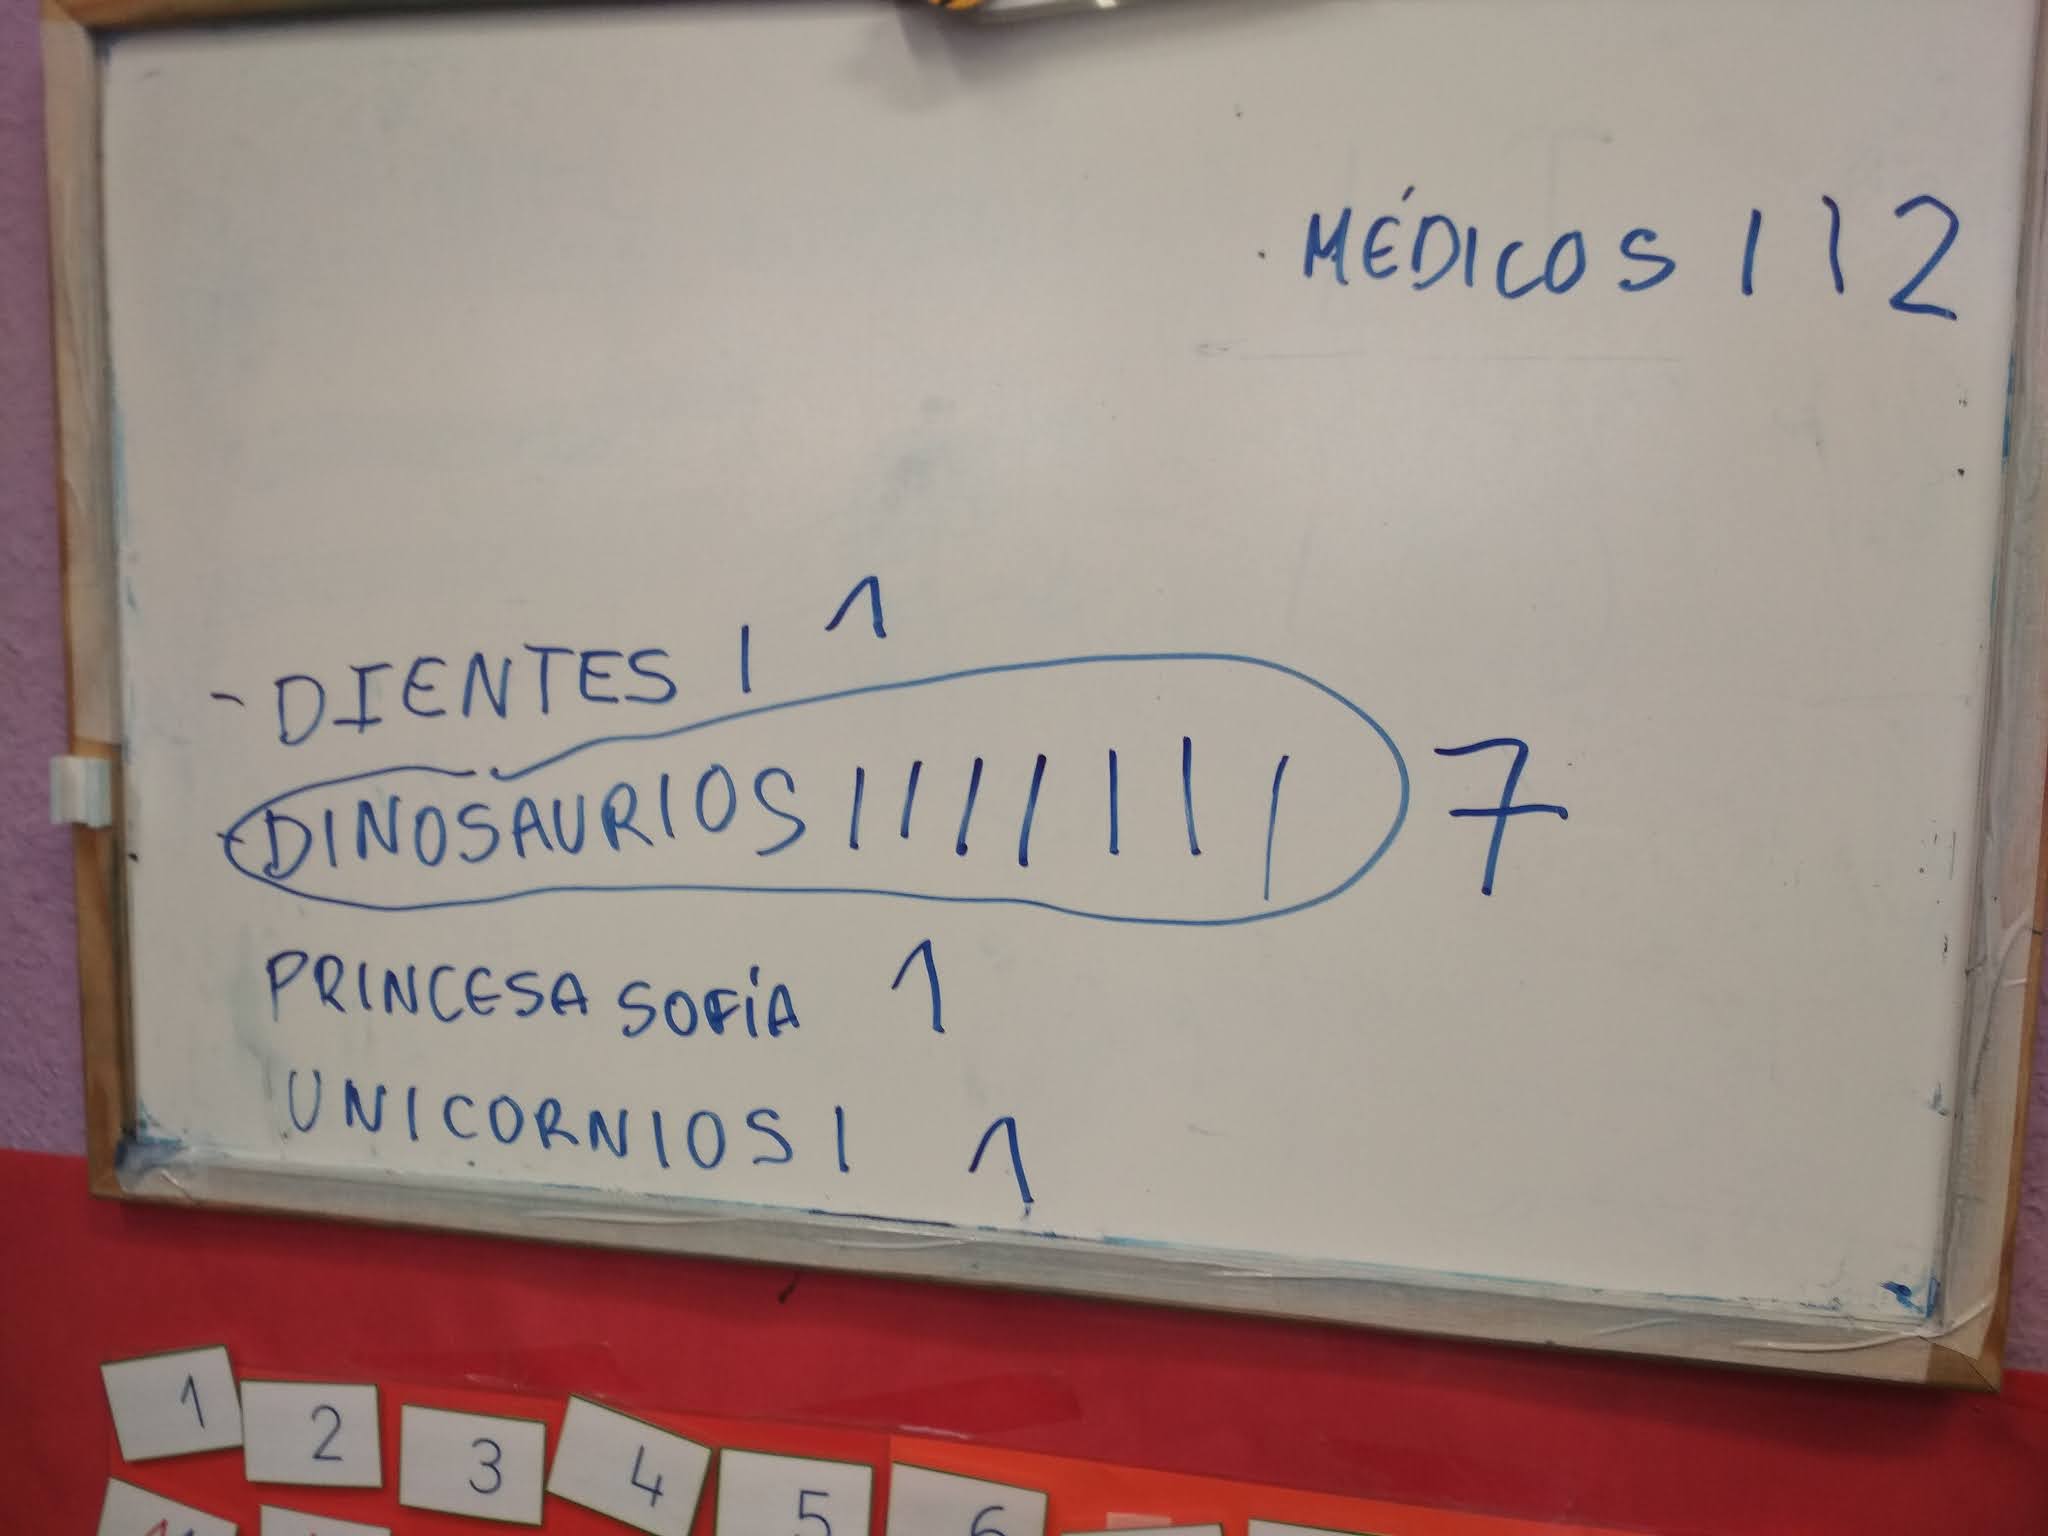 MÉDICOS I I 2
- DIENTES I 1
- DINOSAURIOS I I I I I I I 7
PRINCESA SOFÍA 1
UNICORNIOS I 1
1 2 3 4 5 6